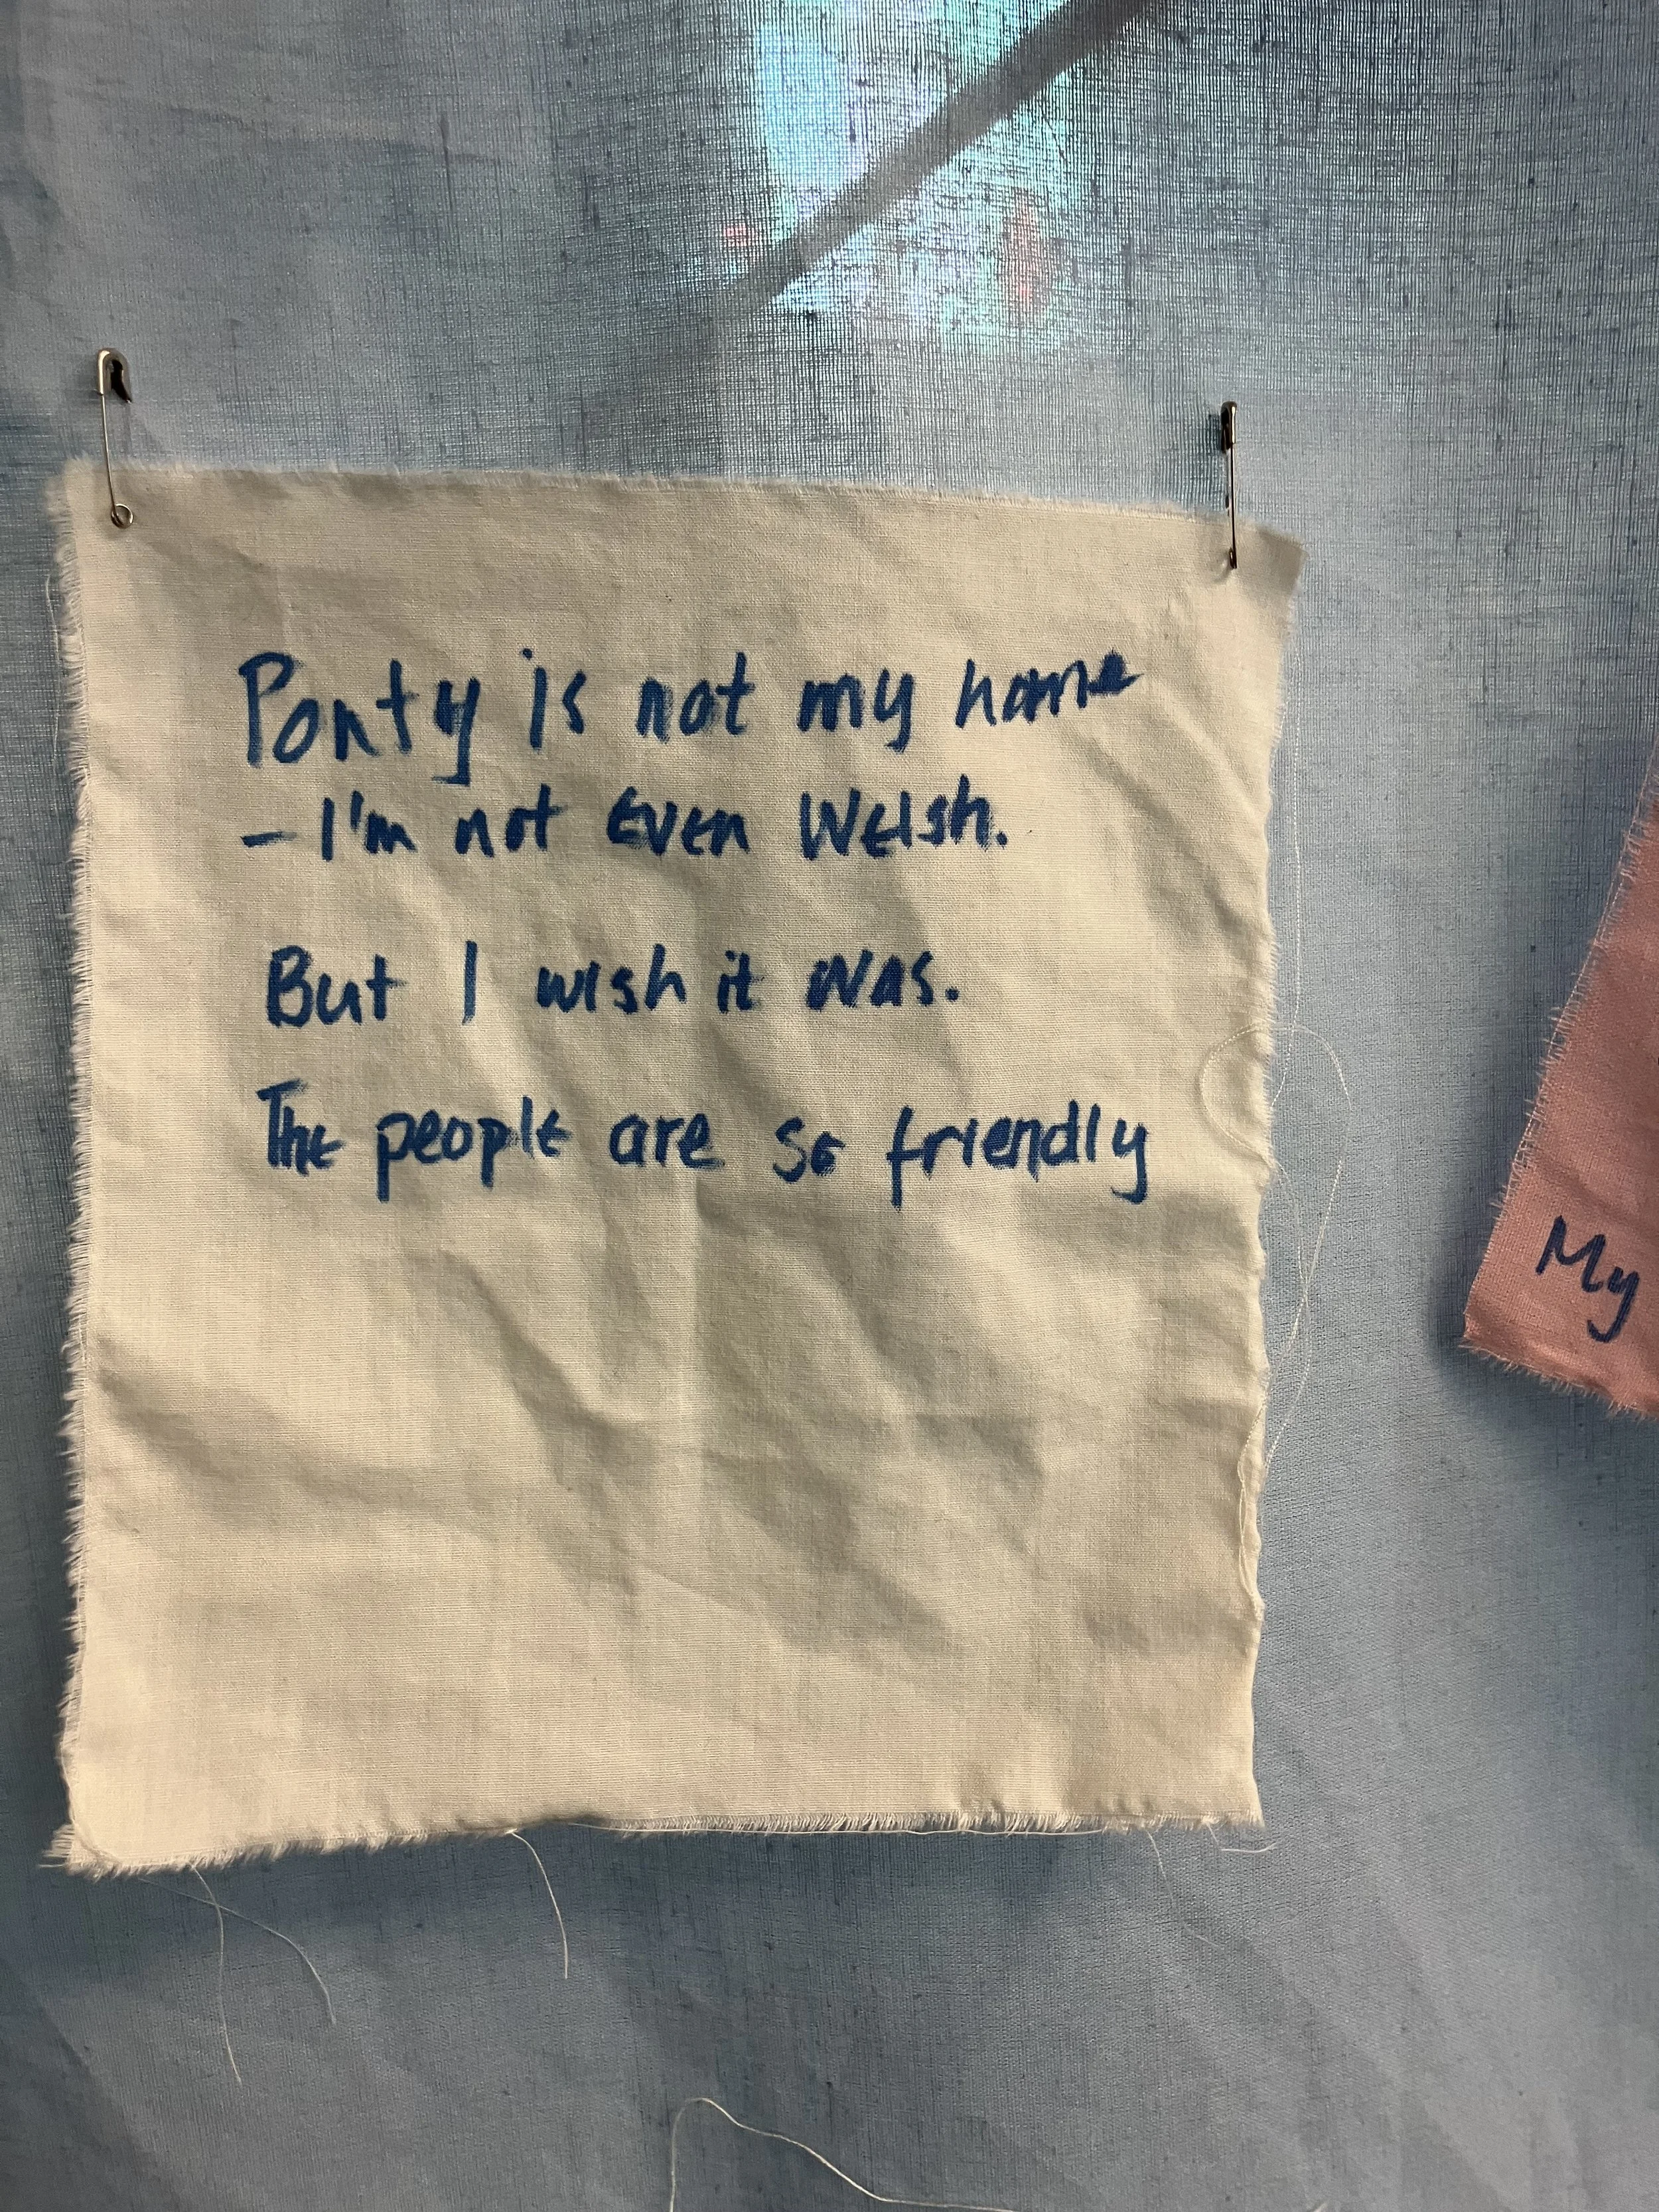 Ponty is not my home
- I'm not even Welsh.
But I wish it was.
The people are so friendly
My